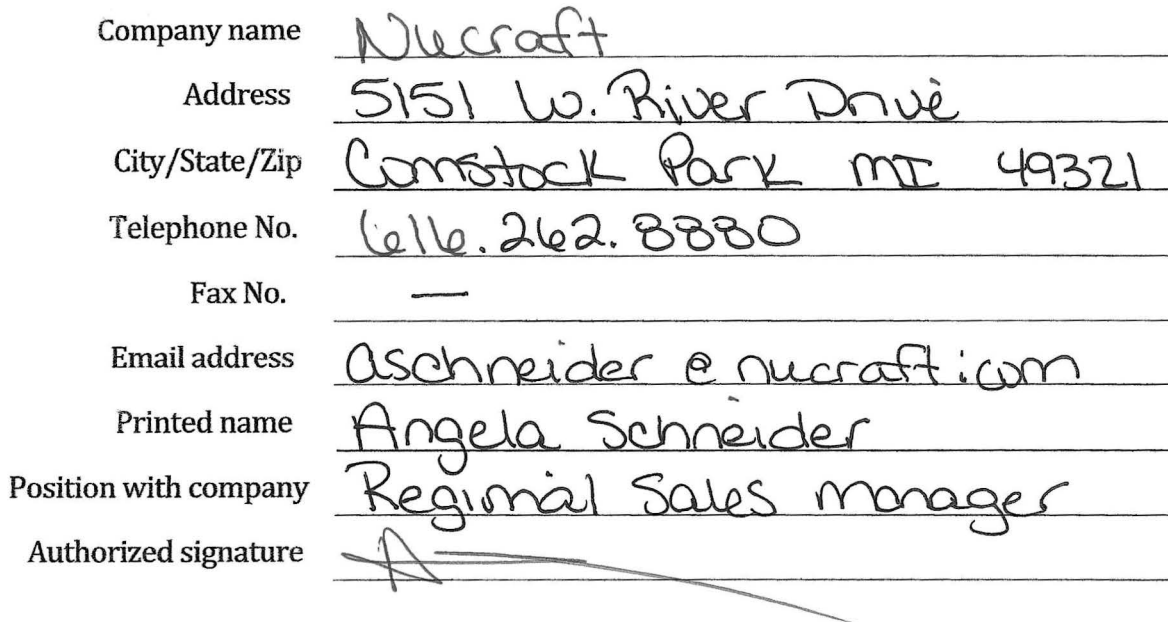 Company name Nucraft
Address 5151 W. River Drive
City/State/Zip Comstock Park MI 49321
Telephone No. 616.262.8880
Fax No. —
Email address aschneider@nucraft.com
Printed name Angela Schneider
Position with company Regional Sales Manager
Authorized signature